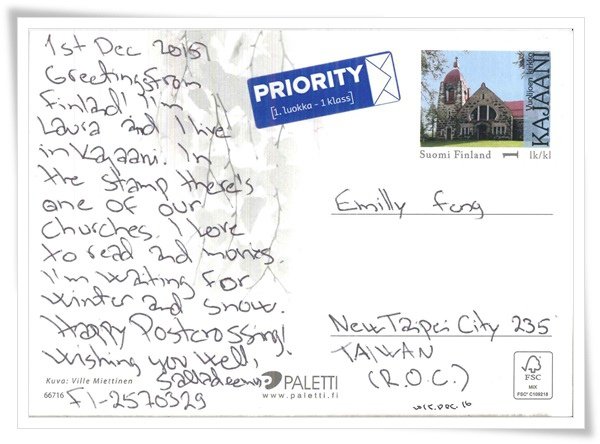 1st Dec 2015
Greetings from
Finland! I'm
Laura and I live
in Kajaani. In
the stamp there's
one of our
churches. I love
to read and movies.
I'm waiting for
winter and snow.
Happy Postcrossing!
Wishing you well,
FI-2570329
Kuva: Ville Miettinen
66716
PALETTI
www.paletti.fi
PRIORITY
[1. luokka - 1 klass]
KAJAANI
Suomi Finland
1 lk/kl
Emilly Fong
New Taipei City 235
TAIWAN
(R.O.C.)
2015.DEC.16
FSC
MIX
FSC® C109218